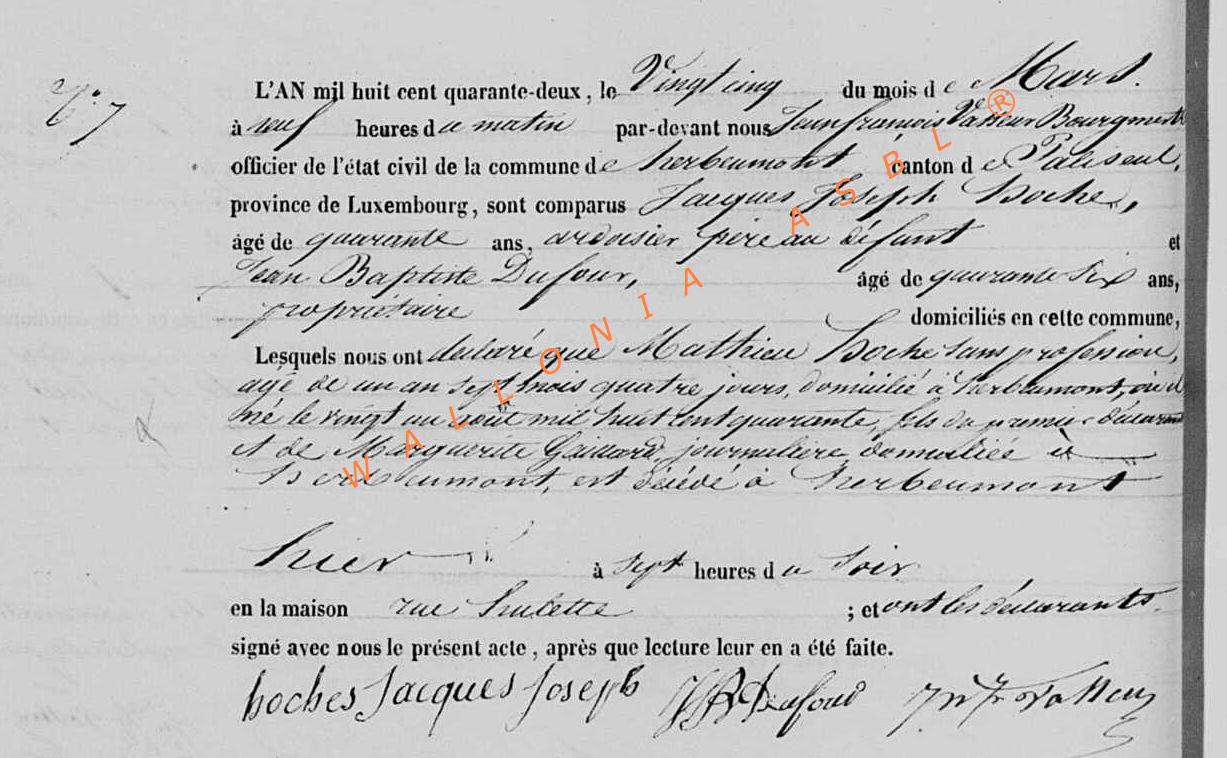 N° 7
L'AN mil huit cent quarante-deux, le Vingt cinq du mois de Mars.
à neuf heures du matin par-devant nous Jean françois Vasseur Bourgmestre
officier de l'état civil de la commune de herbeumont canton de Paliseul,
province de Luxembourg, sont comparus Jacques Joseph Hoche,
âgé de quarante ans, ardoisier père au défunt et
Jean Baptiste Dufour, âgé de quarante six ans,
propriétaire domiciliés en cette commune,
Lesquels nous ont declaré que Mathieu Hoche sans profession,
agé de un an sept mois quatre jours, domicilié à herbeumont, où il
né le vingt un août mil huit cent quarante, fils du premier déclarant
et de Marguerite Gaillard, journaliere domiciliés à
Herbeumont, est décédé à herbeumont
hier à sept heures du soir
en la maison rue hulette ; et ont les déclarants
signé avec nous le présent acte, après que lecture leur en a été faite.
hoches Jacques Joseph JB Dufour
WALLONIA ASBL ®